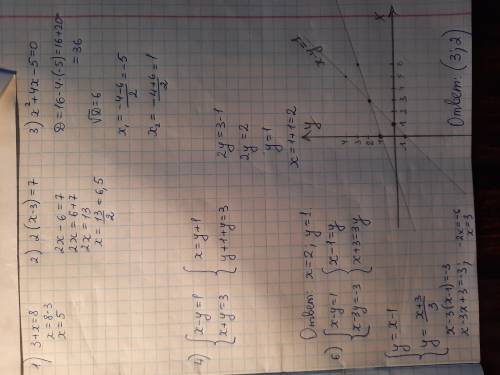 1) 3+x=8
x=8-3
x=5
2) 2(x-3)=7
2x-6=7
2x=6+7
2x=13
x=13/2=6,5
3) x²+4x-5=0
D=16-4·(-5)=16+20
=36
√D=6
x₁=(-4-6)/2=-5
x₂=(-4+6)/2=1
{x-y=1
{x+y=3
{x=y+1
{y+1+y=3
2y=3-1
2y=2
y=1
x=1+1=2
Ответ: x=2; y=1.
{x-y=1
{x-3y=-3
{x-1=y
{x+3=3y
{y=x-1
{y=(x+3)/3
x-3(x-1)=-3
x-3x+3=-3;
-2x=-6
x=3
y
x
Ответ: (3;2)